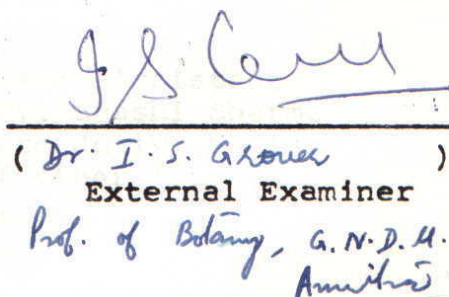 ( Dr. I. S. Grover )
External Examiner
Prof. of Botany, G. N. D. U.
Amritsar